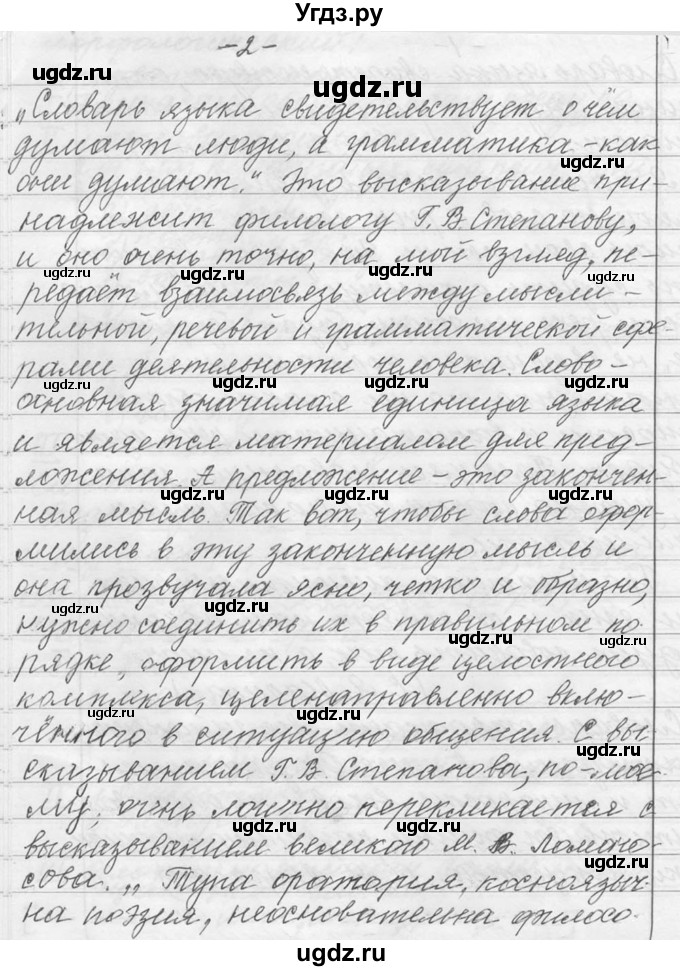 Угдз.ру
-2-
„Словарь языка свидетельствует о чём
думают люди, а грамматика - как
они думают." Это высказывание при-
надлежит филологу Г.В Степанову,
и оно очень точно, на мой взгляд, пе-
редаёт взаимосвязь между мысли-
тельной, речевой и грамматической сфе-
рами деятельности человека. Слово-
основная значимая единица языка
и является материалом для пред-
ложения. А предложение - это закончен-
ная мысль. Так вот, чтобы слова офор-
мились в эту законченную мысль и
она прозвучала ясно, четко и образно,
нужно соединить их в правильном по-
рядке, оформить в виде целостного
комплекса, целенаправленно вклю-
чённого в ситуацию общения. С вы-
сказыванием Г.В. Степанова, по-мое-
му, очень логично перекликается с
высказыванием великого М.В. Ломоно-
сова. „Тупа оратория, косноязыч-
на поэзия, неосновательна филосо-
ugdz.ru